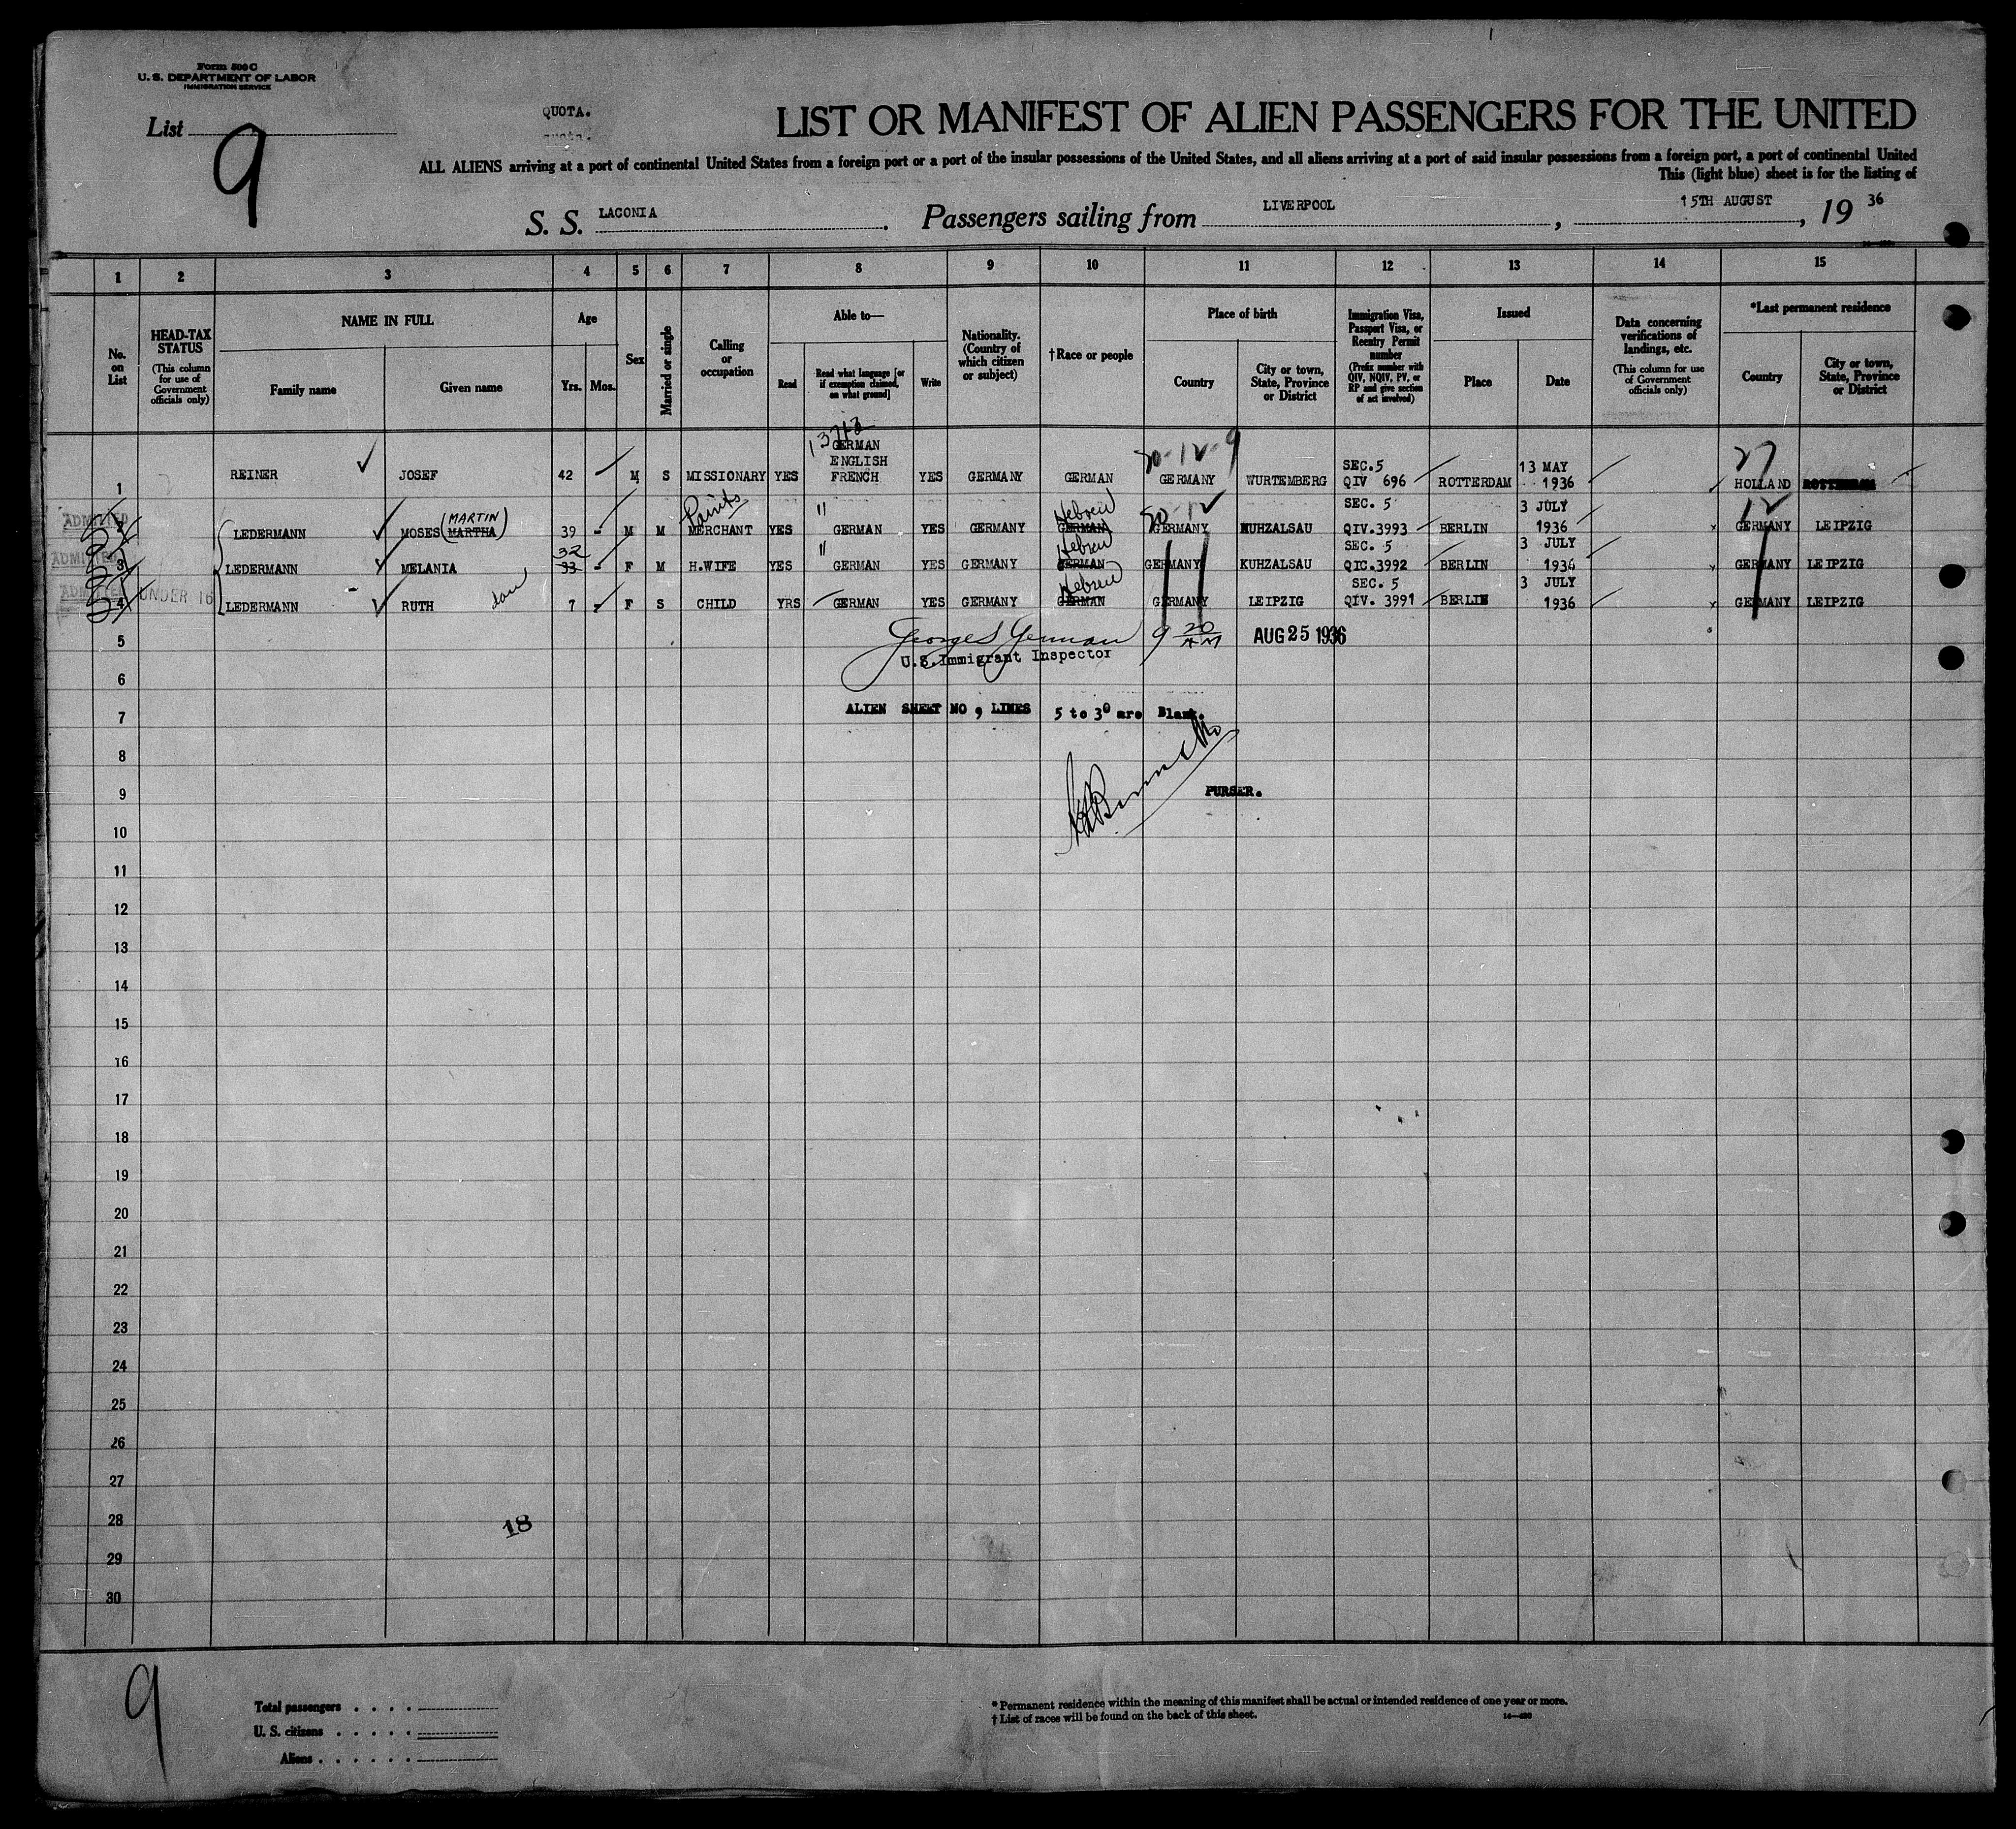 Form 500 C
U. S. DEPARTMENT OF LABOR
IMMIGRATION SERVICE
List
9
QUOTA.
LIST OR MANIFEST OF ALIEN PASSENGERS FOR THE UNITED
ALL ALIENS arriving at a port of continental United States from a foreign port or a port of the insular possessions of the United States, and all aliens arriving at a port of said insular possessions from a foreign port, a port of continental United
This (light blue) sheet is for the listing of
S. S. LACONIA. Passengers sailing from LIVERPOOL, 15TH AUGUST, 19 36
1 2 3 4 5 6 7 8 9 10 11 12 13 14 15
No. on List
HEAD-TAX STATUS
(This column for use of Government officials only)
NAME IN FULL
Family name
Given name
Age
Yrs.
Mos.
Sex
Married or single
Calling or occupation
Able to—
Read
Read what language [or if exemption claimed, on what ground]
Write
Nationality. (Country of which citizen or subject)
†Race or people
Place of birth
Country
City or town, State, Province or District
Immigration Visa, Passport Visa, or Reentry Permit number
(Prefix number with QIV, NQIV, PV, or RP and give section of act involved)
Issued
Place
Date
Data concerning verifications of landings, etc.
(This column for use of Government officials only)
*Last permanent residence
Country
City or town, State, Province or District
1 REINER JOSEF 42 M S MISSIONARY YES GERMAN ENGLISH FRENCH YES GERMANY GERMAN 20-12-9 GERMANY WURTEMBERG SEC.5 QIV 696 ROTTERDAM 13 MAY 1936 27 HOLLAND ROTTERDAM
ADMITTED 2 LEDERMANN MOSES (MARTIN MARTHA) 39 M M Paints MERCHANT YES " GERMAN YES GERMANY Hebrew GERMAN 20-12 GERMANY KUHZALSAU SEC. 5 QIV.3993 BERLIN 3 JULY 1936 x 12 GERMANY LEIPZIG
ADMITTED 3 LEDERMANN MELANIA 32 33 F M H.WIFE YES " GERMAN YES GERMANY Hebrew GERMAN GERMANY KUHZALSAU SEC. 5 QIC.3992 BERLIN 3 JULY 1934 x GERMANY LEIPZIG
ADMITTED 4 UNDER 16 LEDERMANN RUTH dau 7 F S CHILD YRS GERMAN YES GERMANY Hebrew GERMAN GERMANY LEIPZIG SEC. 5 QIV. 3991 BERLIN 3 JULY 1936 x GERMANY LEIPZIG
5 9 20 AM AUG 25 1936
U.S. Immigrant Inspector
6
7 ALIEN SHEET NO 9 LINES 5 to 30 are Blank.
8
9 PURSER.
10
11
12
13
14
15
16
17
18
19
20
21
22
23
24
25
26
27
28
18
29
30
9
Total passengers . . . .
U. S. citizens . . . . .
Aliens . . . . . .
* Permanent residence within the meaning of this manifest shall be actual or intended residence of one year or more.
† List of races will be found on the back of this sheet.